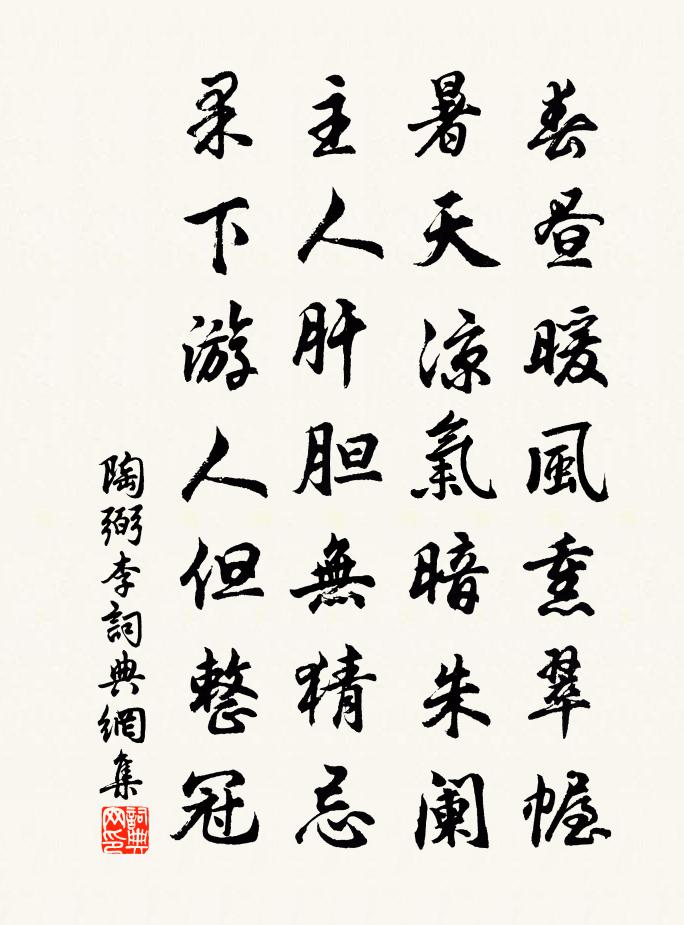 春昼暖風熏翠幄
暑天涼氣暗朱阑
主人肝胆無猜忌
果下游人但整冠
陶弼李詞典網集
詞典网印